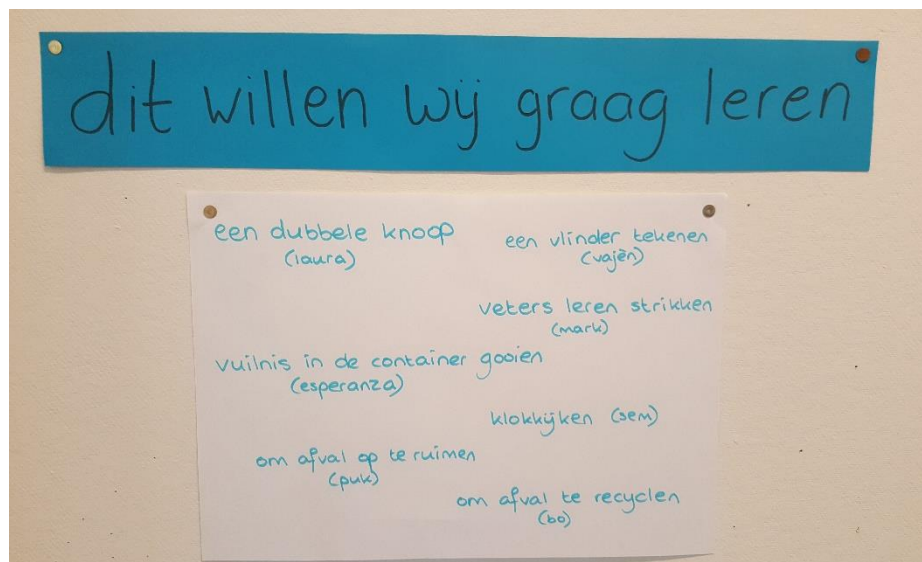 dit willen wij graag leren
een dubbele knoop
(laura)
een vlinder tekenen
(vajèn)
veters leren strikken
(mark)
vuilnis in de container gooien
(esperanza)
klokkijken (sem)
om afval op te ruimen
(puk)
om afval te recyclen
(bo)